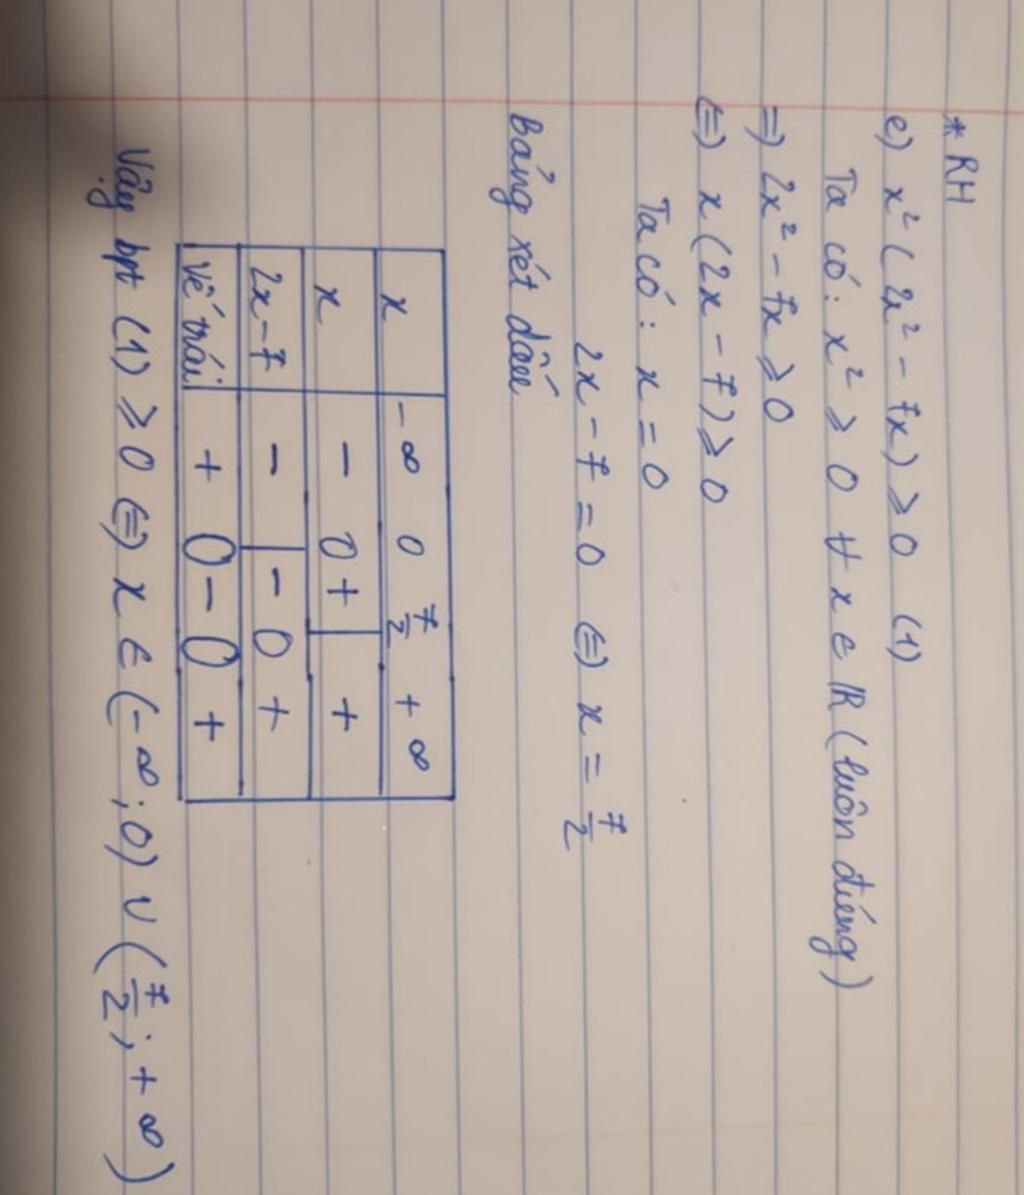 * RH
e) x² ( 2x² - 7x) ⩾ 0 (1)
Ta có: x² ⩾ 0 ∀ x ∈ ℝ (luôn đúng)
=) 2x² - 7x ⩾ 0
(=) x (2x - 7) ⩾ 0
Ta có: x = 0
2x - 7 = 0 (=) x = 7/2
Bảng xét dấu
x -∞ 0 7/2 +∞
x - 0 + | +
2x-7 - | - 0 +
Vế trái + 0 - 0 +
Vậy bpt (1) ⩾ 0 (=) x ∈ (-∞; 0) ∪ (7/2; +∞)